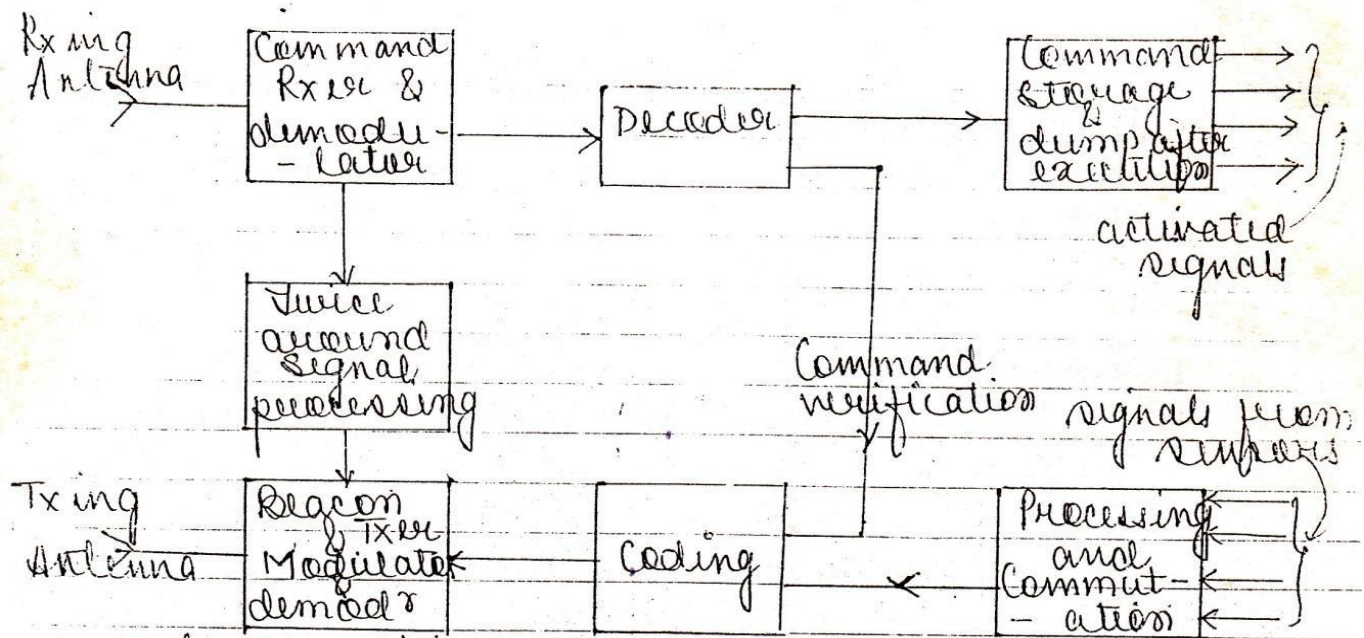 Rxing
Antenna
Command
Rxer &
demodu-
-lator
Decoder
Command
storage
&
dump after
execution
activated
signals
Twice
around
signal
processing
Command
verification
signals from
sensors
Txing
Antenna
Beacon
& Txer
Modulator
&
demodr
Coding
Processing
and
Commut-
-ation